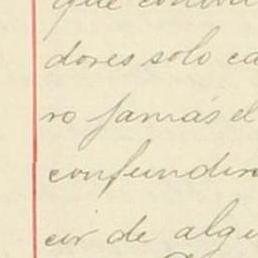 que
dores solo ca
ro jamás el
confundir
cir de algu